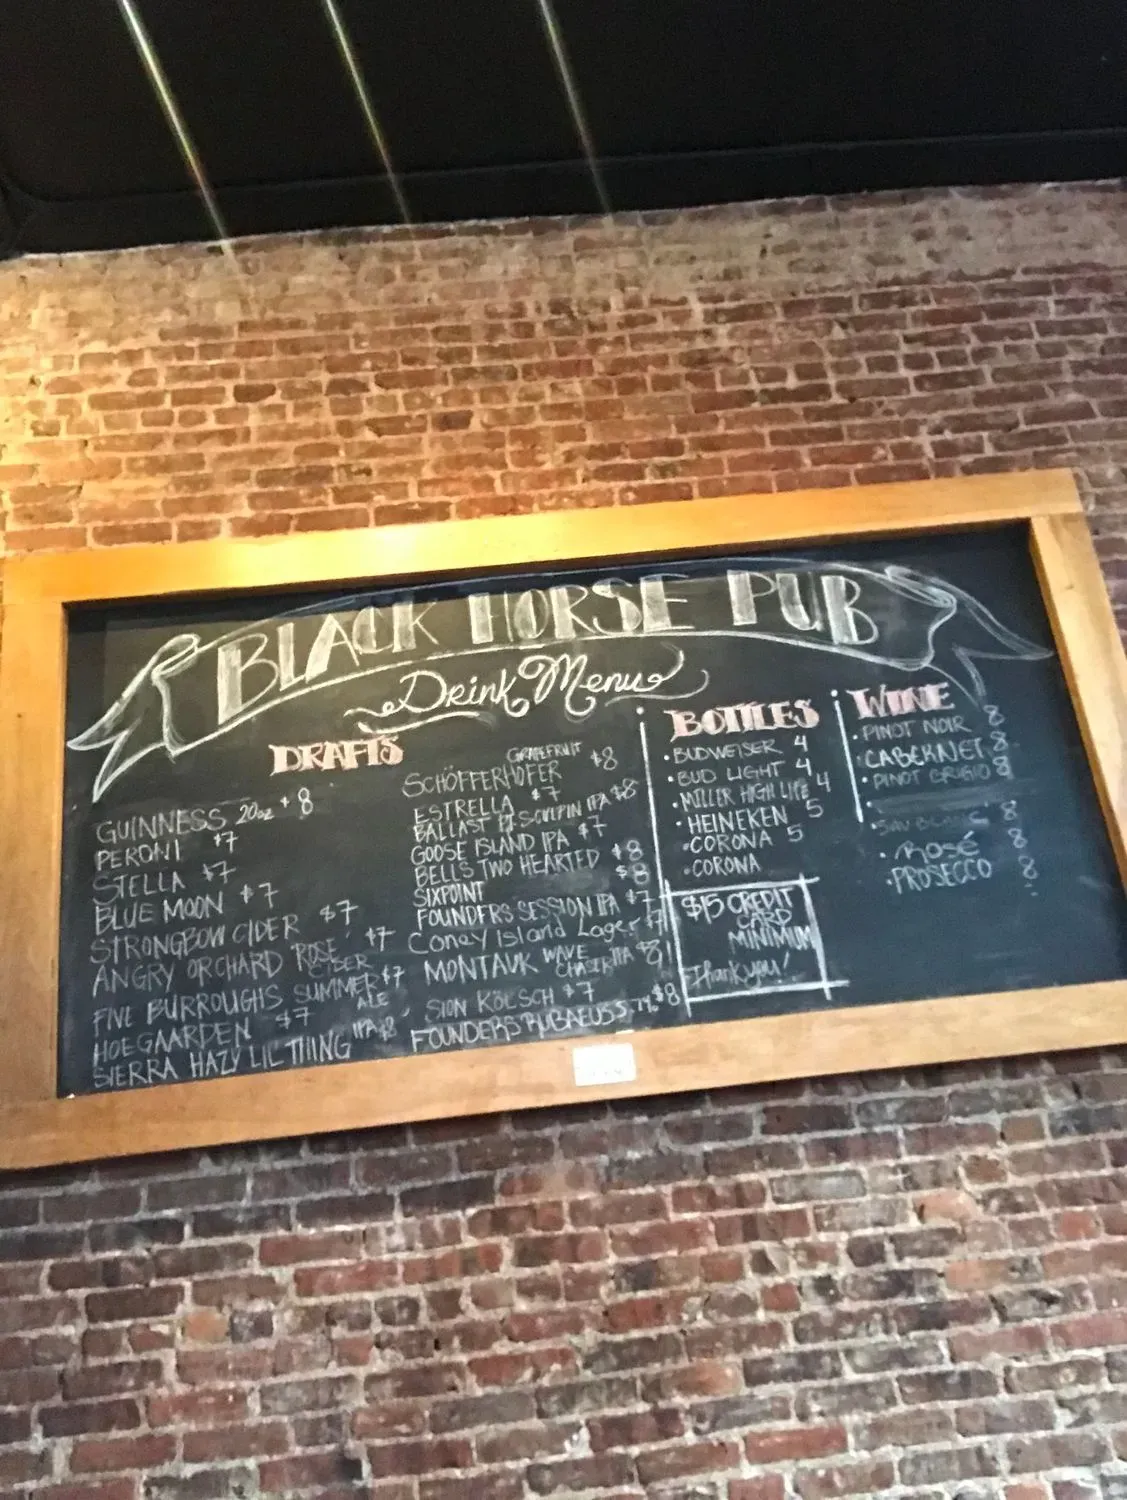 BLACK HORSE PUB
Drink Menu
DRAFTS
GUINNESS 20oz $8
PERONI $7
STELLA $7
BLUE MOON $7
STRONGBOW CIDER $7
ANGRY ORCHARD ROSE CIDER $7
FIVE BURROUGHS SUMMER ALE $7
HOEGAARDEN $7
SIERRA HAZY LIL THING IPA $8
GRAPEFRUIT
SCHÖFFERHOFER $8
ESTRELLA $7
BALLAST PT SCULPIN IPA $8
GOOSE ISLAND IPA $7
BELLS TWO HEARTED $8
SIXPOINT $8
FOUNDERS SESSION IPA $7
Coney Island Lager $7
MONTAUK WAVE CHASER IPA $8
SION KÖLSCH $7
FOUNDERS RUBAEUS 5.7% $8
BOTTLES
• BUDWEISER 4
• BUD LIGHT 4
• MILLER HIGH LIFE 4
• HEINEKEN 5
• CORONA 5
• CORONA
$15 CREDIT
CARD
MINIMUM
Thank you!
WINE
• PINOT NOIR 8
• CABERNET 8
• PINOT GRIGIO 8
• SAV BLANC 8
• Rosé 8
• PROSECCO 8